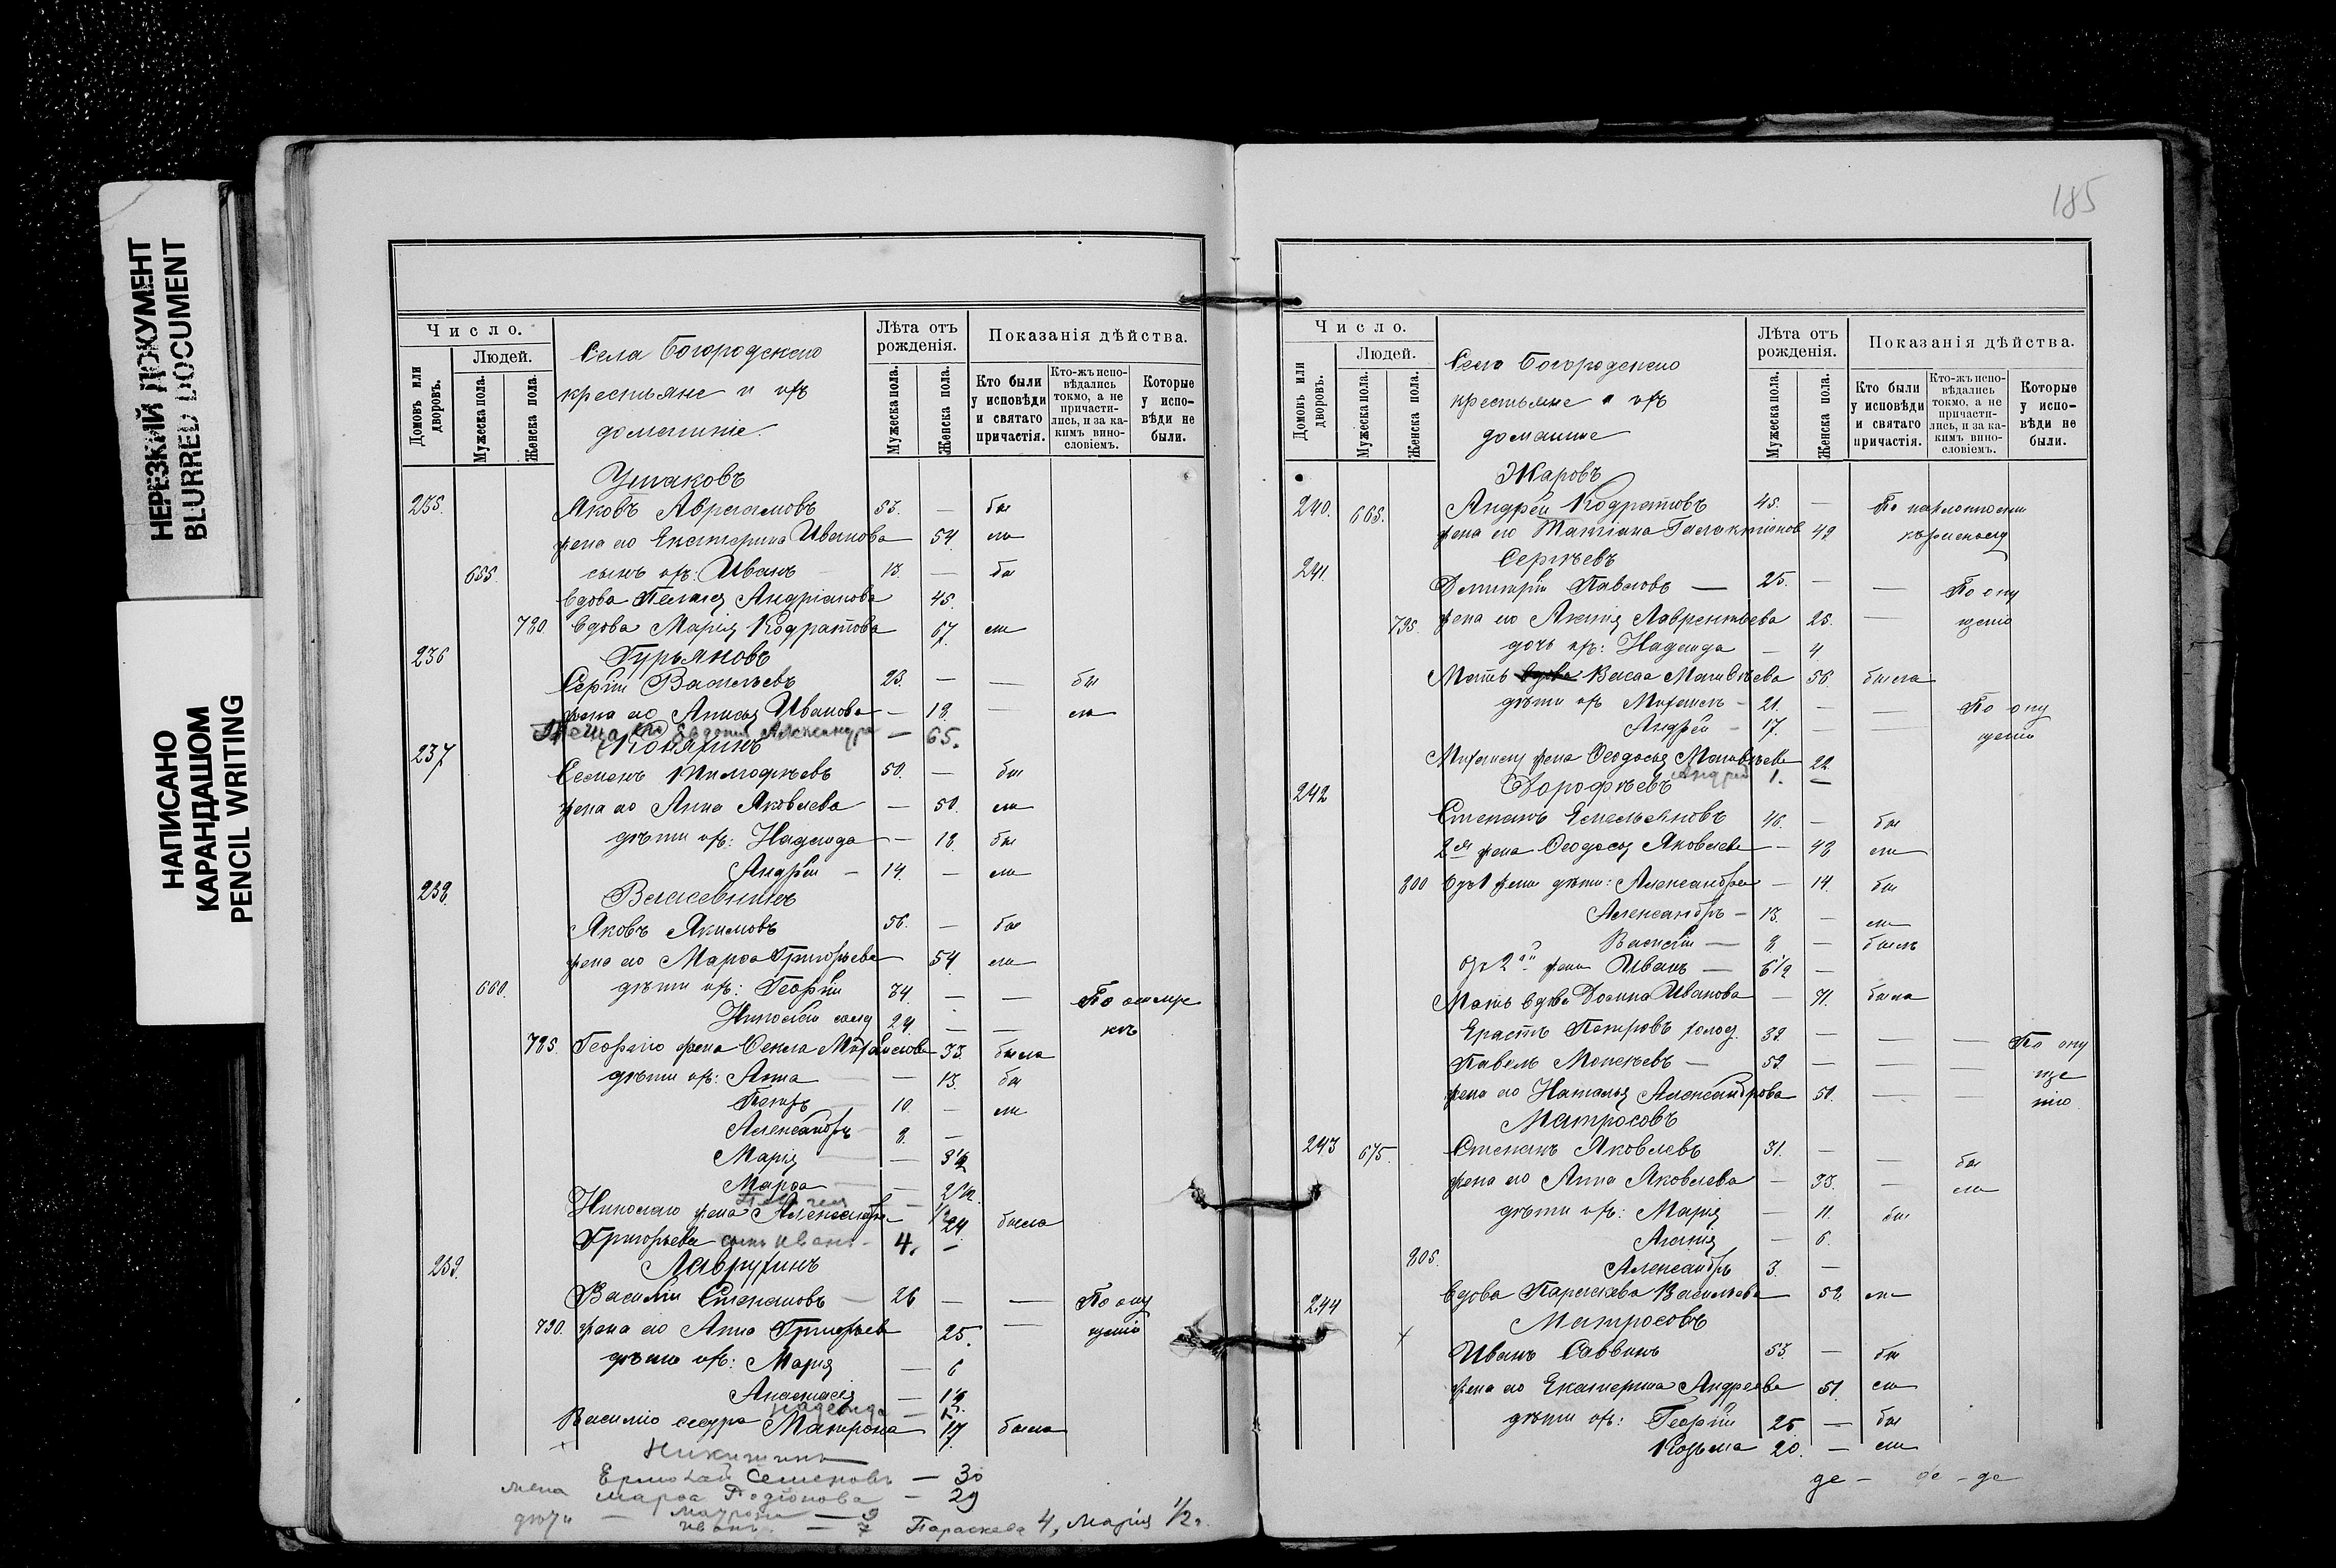 НЕРЕЗКИЙ ДОКУМЕНТ
BLURRED DOCUMENT
НАПИСАНО
КАРАНДАШОМ
PENCIL WRITING
Число.
Людей.
Домовъ или дворовъ.
Мужеска пола.
Женска пола.
Села Богородскаго
крестьяне и ихъ
домашніе.
Лѣта отъ рожденія.
Мужеска пола.
Женска пола.
Показанія дѣйства.
Кто были у исповѣди и святаго причастія.
Кто-жъ исповѣдались токмо, а не причастились, и за какимъ винословіемъ.
Которые у исповѣди не были.
Ушаковъ
235. Яковъ Авраамовъ 53. — бы
жена его Екатерина Иванова 54. ли
655. сынъ ихъ: Иванъ — 13. — бы
вдова Пелагія Андріанова 45.
780. вдова Марія Кодратова 67. ли
236 Гурьяновъ
Сергій Васильевъ 23. — — бы
жена его Анисья Иванова — 18. — ли
Евдокія Александра — 65.
237
Семенъ Тимофѣевъ 50. — бы
жена его Анна Яковлева — 50. ли
дѣти ихъ: Надежда — 18. бы
Андрей — 14. — ли
238. Власевнинъ
Яковъ Якимовъ 56. — бы
жена его Марѳа Григорьева 54 ли
660. дѣти ихъ: Георгій 34. — — По отлуч
Николай солд 29. — — кѣ
785. Георгію жена Ѳекла Михайлова 33. была
дѣти ихъ: Анна — — 13. бы
Петръ 10. — ли
Александръ 8. —
Марія — — 3½
Марѳа — — 2½.
Пелагея — ½
Николаю жена Александра 24 была
Григорьева сынъ Иванъ — 4. —
239. Лаврухинъ
Василій Степановъ — 26 — — По опу
790. жена его Анна Григорьев 25. — щенію
дѣти ихъ: Марія — 6
Анастасія — 1½
Надежда —
Василію сестра Матрона 17 была
Никитинъ
Ермолай Семеновъ — 30
жена Марѳа Родіонова — 29
дѣти — Матрона — 9
Иванъ — 7 Параскева 4, Марія ½.
185
Число.
Людей.
Домовъ или дворовъ.
Мужеска пола.
Женска пола.
Села Богородскаго
крестьяне и ихъ
домашніе
Лѣта отъ рожденія.
Мужеска пола.
Женска пола.
Показанія дѣйства.
Кто были у исповѣди и святаго причастія.
Кто-жъ исповѣдались токмо, а не причастились, и за какимъ винословіемъ.
Которые у исповѣди не были.
Жаровъ
240. 665. Андрей Кодратовъ 45. — По наклонности
жена его Татіана Галактіонов 49 къ расколу
241. Сергѣевъ
Димитрій Павловъ — 25. — — По опу
795. жена его Агапія Лаврентьева 25. — щенію
дочь ихъ: Надежда — 4.
Мать Васса Матвѣева 56. была
дѣти ихъ Михаилъ — 21. — — По опу
Андрей — 17. — — щенію
Михаилу жена Ѳеодосья Матвѣева 22
Андрей 1. —
242 Дорофѣевъ
Степанъ Емельяновъ 46. — бы
2ая жена Ѳеодосья Яковлева — 48 ли
800 отъ 1 жены дѣти: Александра — 14. бы
Александръ — 13. — ли
Василій — 8 — былъ
отъ 2ой жены Иванъ — 6½ —
Мать вдова Домна Иванова — 71. была
Ерастъ Петровъ холос. 39. — — — По опу
Павелъ Моисеевъ — 59. — — — ще
жена его Наталья Александрова 50. — — нію
Матросовъ
243 675. Степанъ Яковлевъ 31. — — бы
жена его Анна Яковлева — 33. — ли
дѣти ихъ: Марія — 11. бы
Агапія — 6.
805. Александръ 3. —
вдова Параскева Васильева 58. ли
244 Матросовъ
Иванъ Саввинъ 53. — бы
жена его Екатерина Андреева 51 ли
дѣти ихъ: Георгій 25 — бы
Козьма 20. — ли